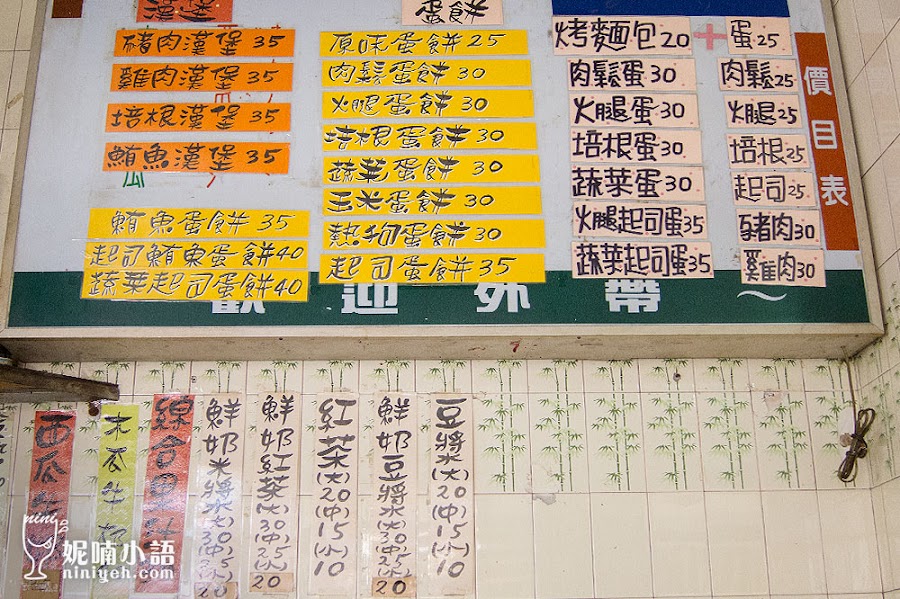 漢堡
豬肉漢堡 35
雞肉漢堡 35
培根漢堡 35
鮪魚漢堡 35
鮪魚蛋餅 35
起司鮪魚蛋餅 40
蔬菜起司蛋餅 40
蛋餅
原味蛋餅 25
肉鬆蛋餅 30
火腿蛋餅 30
培根蛋餅 30
蔬菜蛋餅 30
玉米蛋餅 30
熱狗蛋餅 30
起司蛋餅 35
烤麵包 20 + 蛋 25
肉鬆蛋 30
火腿蛋 30
培根蛋 30
蔬菜蛋 30
火腿起司蛋 35
蔬菜起司蛋 35
肉鬆 25
火腿 25
培根 25
起司 25
豬肉 30
雞肉 30
價目表
歡迎外帶
豆漿(大)20(中)15(小)10
鮮奶豆漿(大)30(中)25(小)20
紅茶(大)20(中)15(小)10
鮮奶紅茶(大)30(中)25(小)20
鮮奶米漿(大)30(中)25(小)20
綜合果汁
木瓜牛奶
西瓜
nini
妮喃小語
niniyeh.com